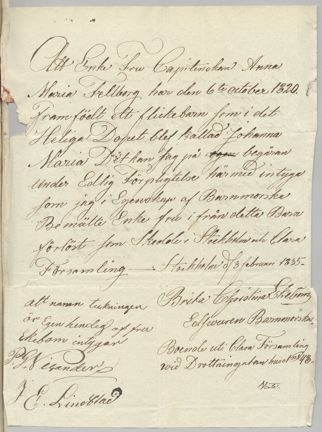 Att Enke Fru Capitenskan Anna
Maria Fellberg har den 6te October 1820.
Framfödt ett flickebarn som i det
Heliga Dopet blef kallad Johanna
Maria Det kan jag på begäran
under Edlig Förpligtelse härmed intyga
som jag i Egenskap af Barnmorska
Bemälte Enke fru i från detta Barn
förlöst som Skedde i Stockholm och Clara
Församling — Stockholm d. 3 februari 1835.
Att namn teckningen
är Egenhändig af fru
Ekebom intygar
P. Visander
J E. Lindblad
Brita Christina
Edsvuren Barnmorska.
Boende uti Clara Församling
wid Drottninggatan huset No